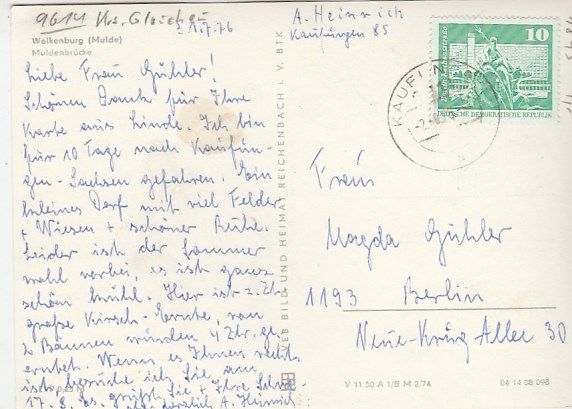 9614 Krs. Glauchau
21.7.76
Wolkenburg (Mulde)
Muldenbrücke
Liebe Frau Gühler!
Schönen Dank für Ihre
Karte aus Linde. Ich bin
für 10 Tage nach Kaufun-
gen-Sachsen gefahren. Ein
kleines Dorf mit viel Felder
+ Wiesen + schöner Ruhe.
Leider ist der Sommer
wohl vorbei, es ist ganz
schön kühl. Hier ist z. Zt.
große Kirsch-Ernte, von
2 Bäumen wurden 4 Ztr. ge-
erntet. Wenn es Ihnen recht
ist besuche ich Sie am
17. 8. Es grüßt Sie + Ihre
herzlich A. Heinrich
A. Heinrich
Kaufungen 85
VEB BILD UND HEIMAT REICHENBACH I. V. BTK
10
DEUTSCHE DEMOKRATISCHE REPUBLIK
KAUFUN
Frau
Magda Gühler
1193 Berlin
Neue-Krug Allee 30
V 11 50 A 1/B M 2/74
04 14 08 098